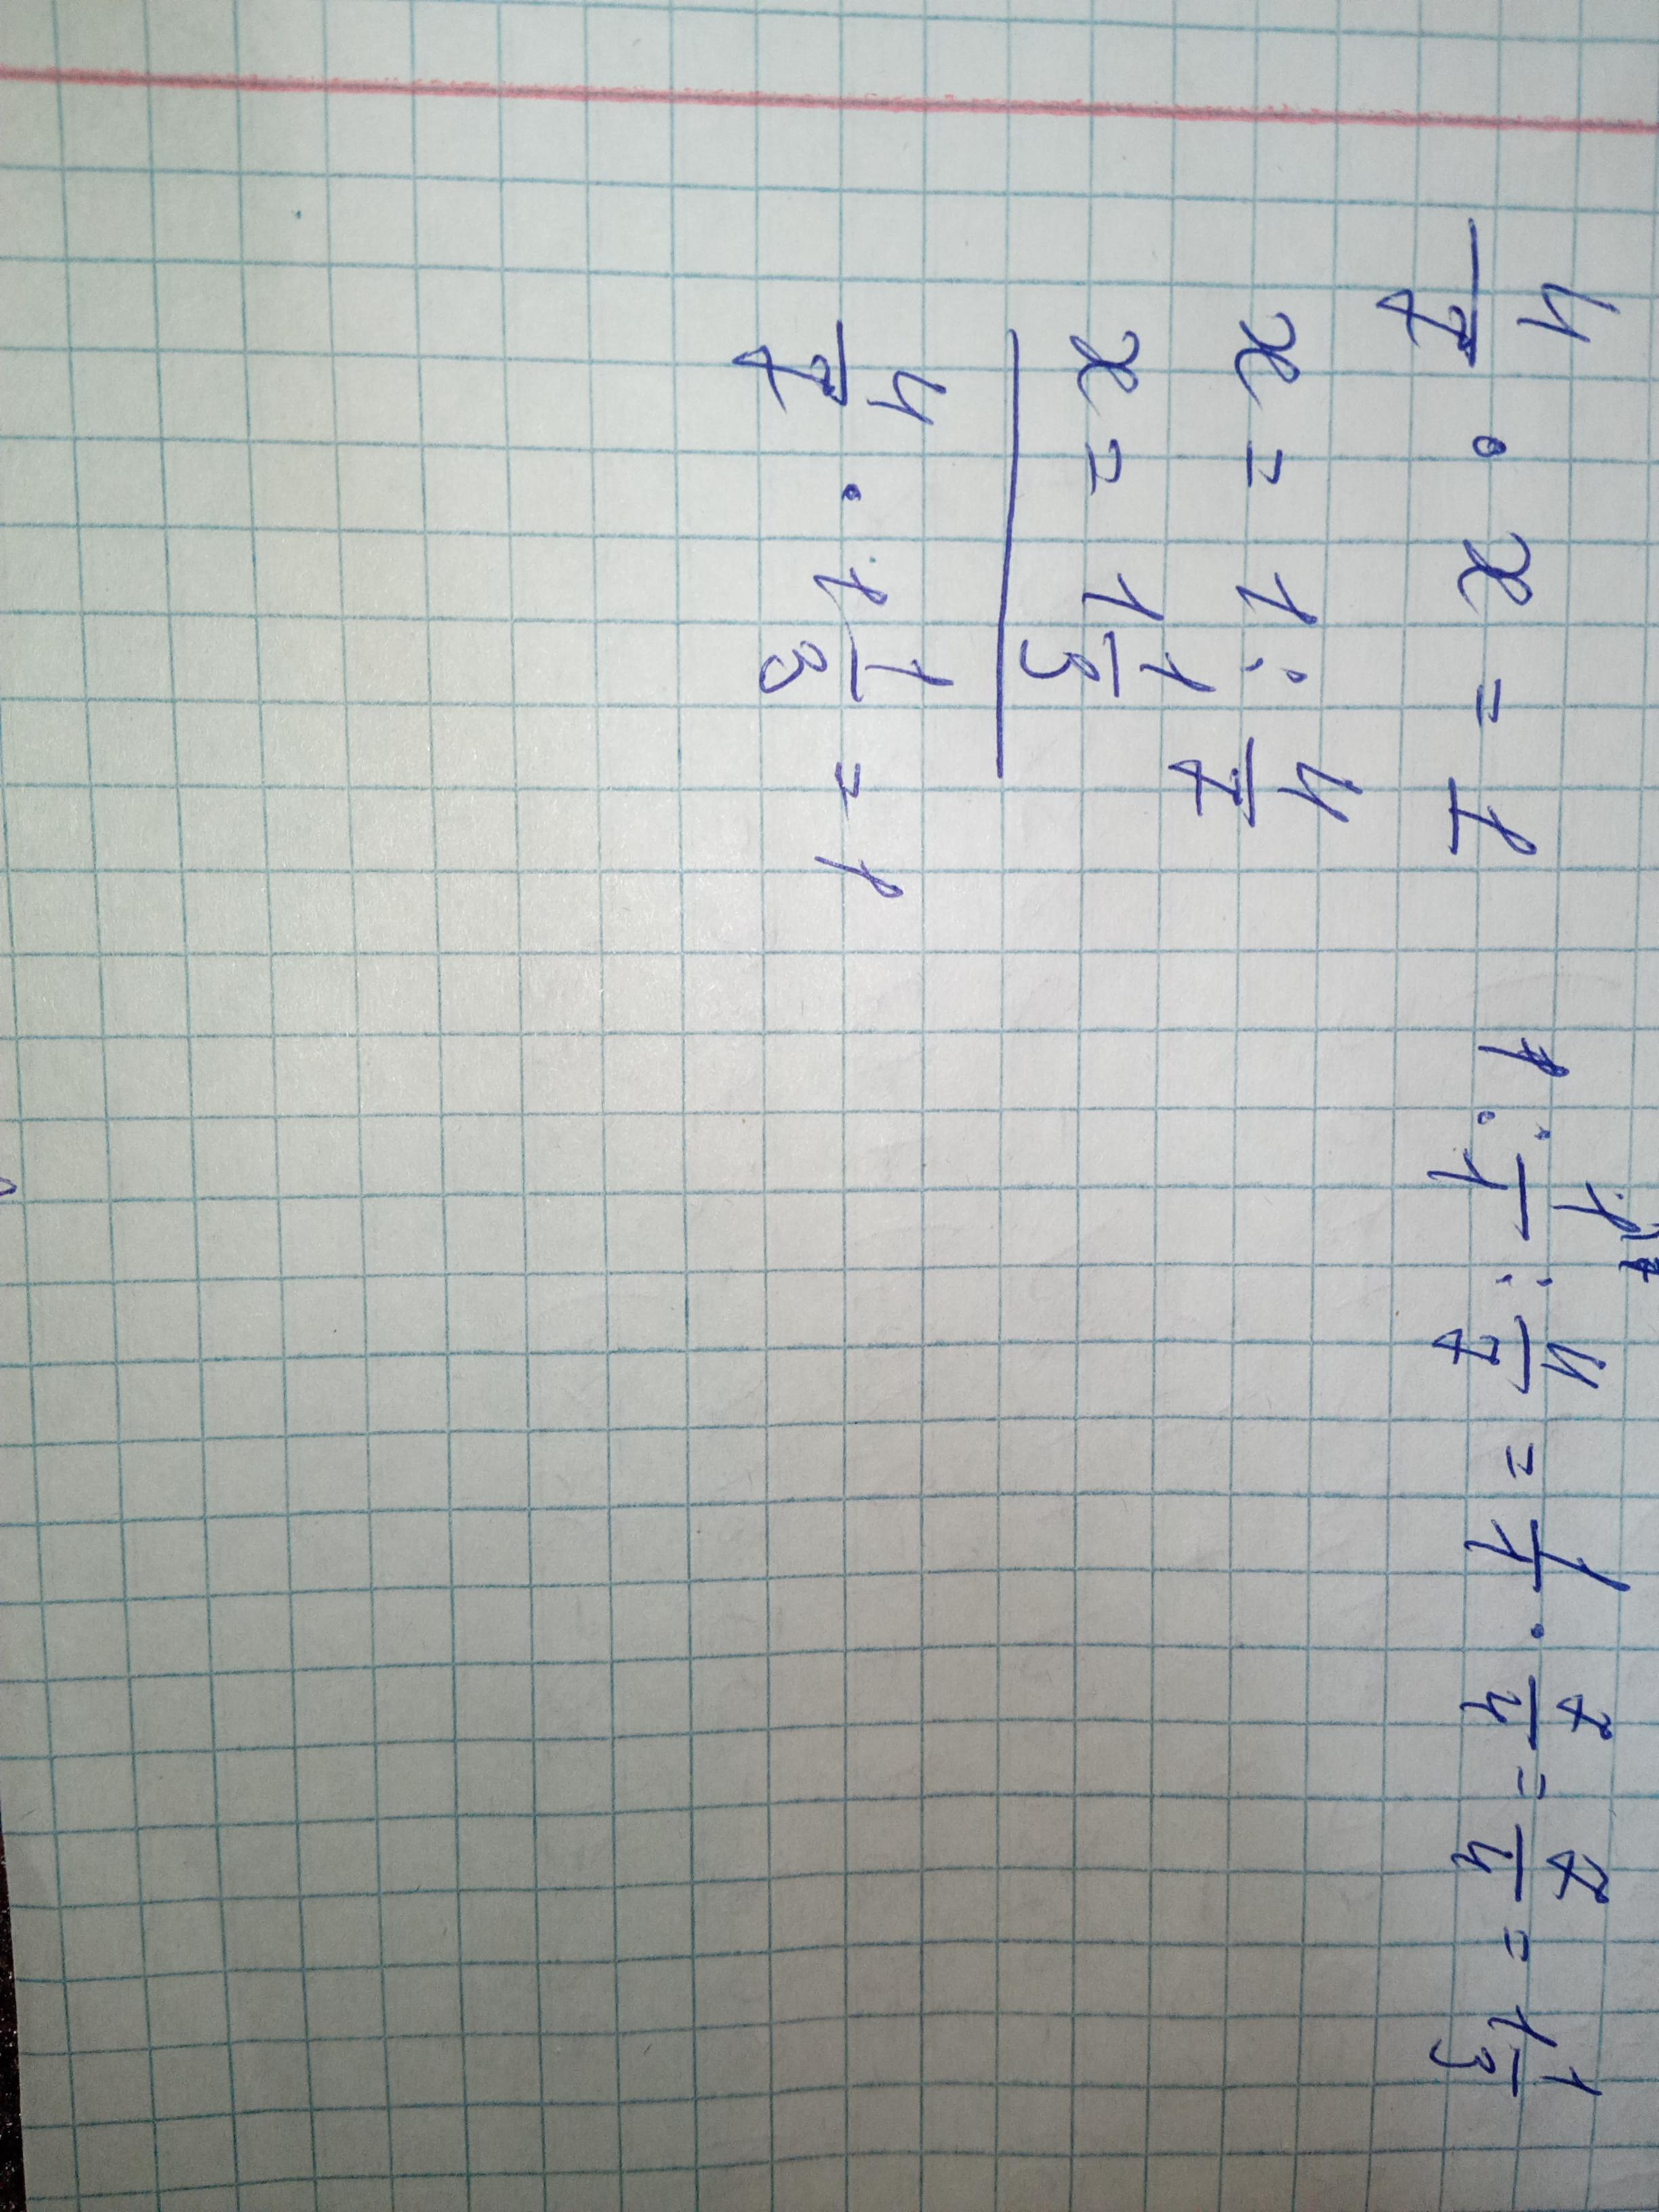 4/7 · x = 1    1 : 1/1 : 4/7 = 1/1 · 7/4 = 7/4 = 1 1/3
x = 1 : 4/7
x = 1 1/3
4/7 · 1 1/3 = 1